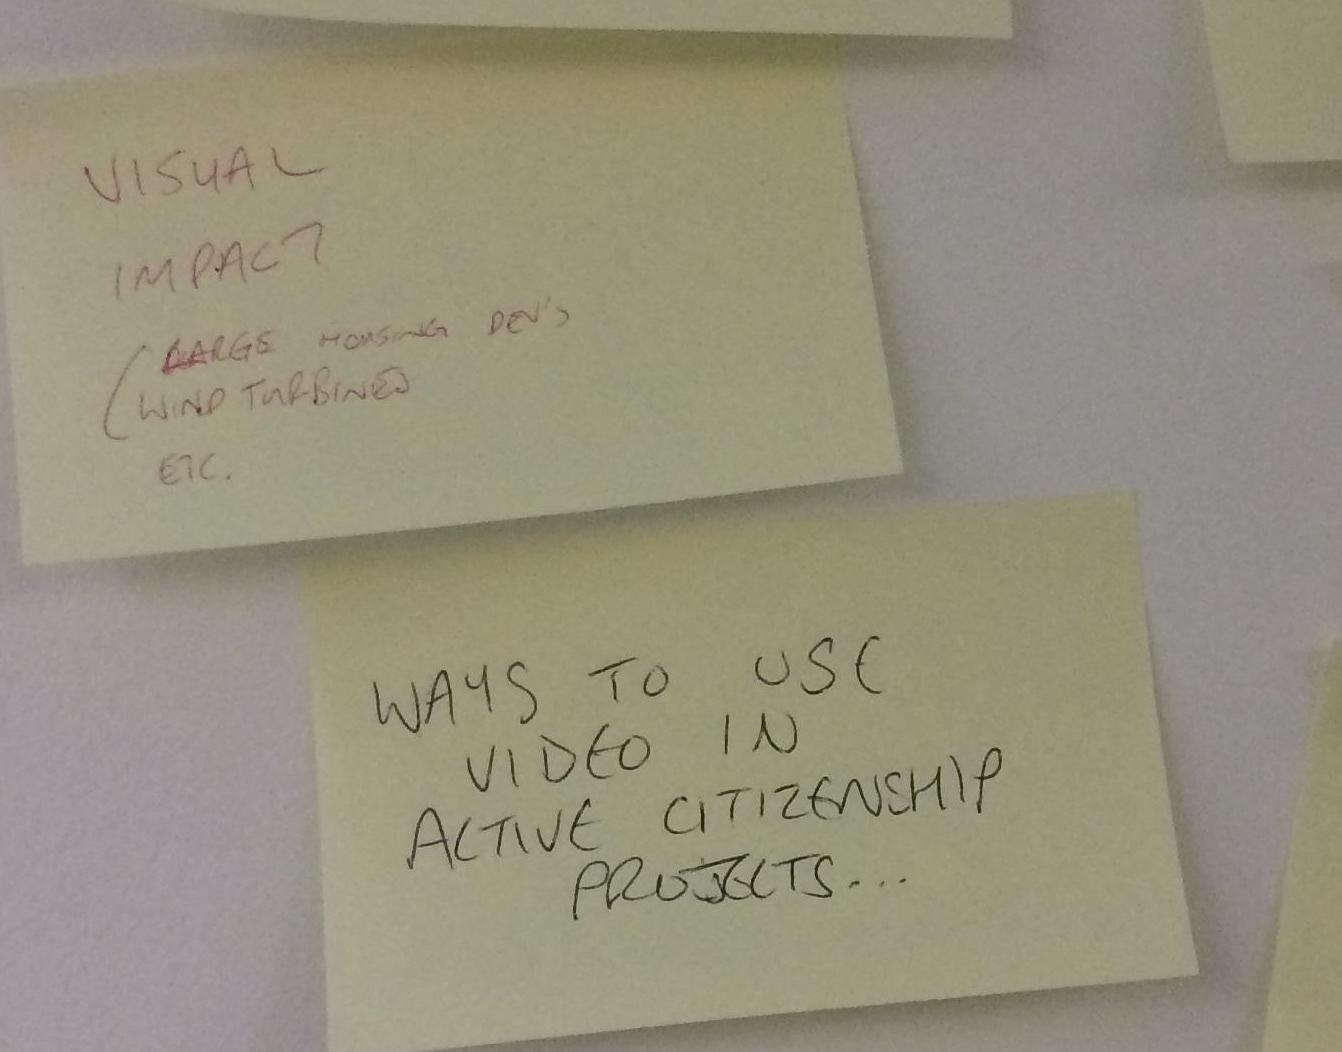 VISUAL
IMPACT
(LARGE HOUSING DEV'S
WIND TURBINES
ETC.
WAYS TO USE
VIDEO IN
ACTIVE CITIZENSHIP
PROJECTS...